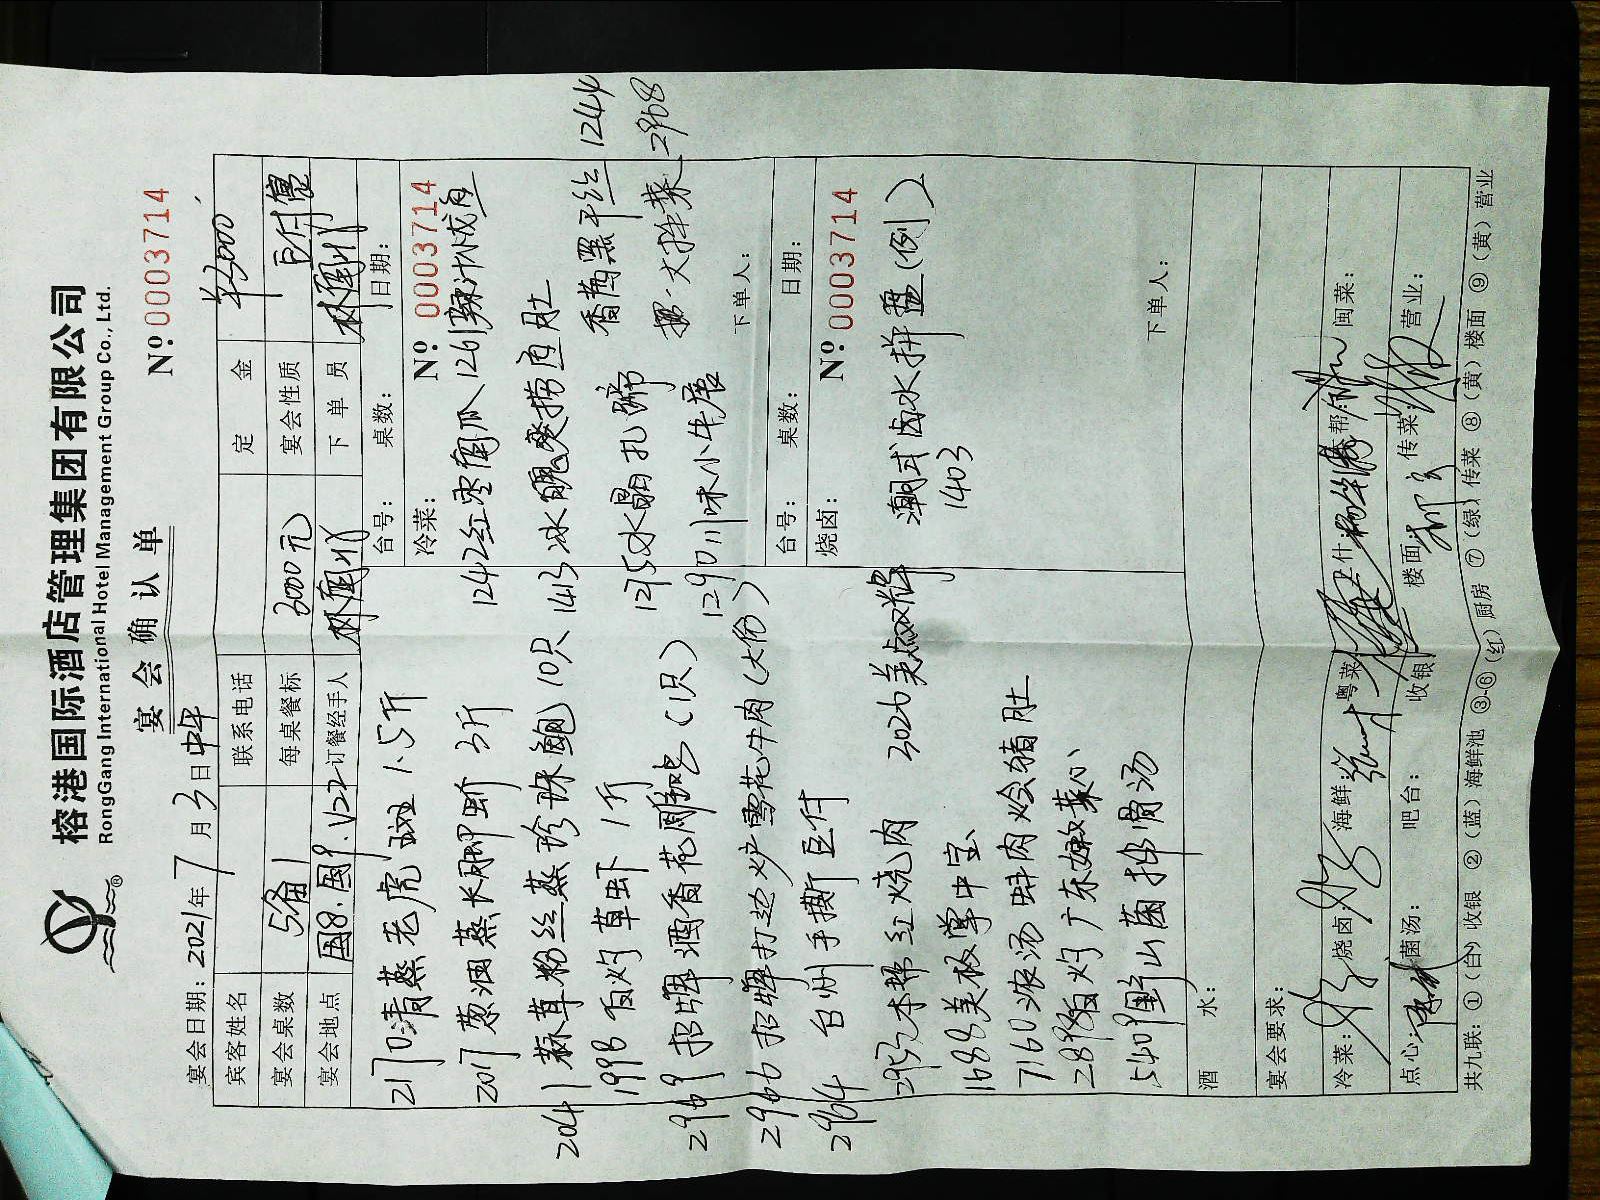 榕港国际酒店管理集团有限公司
RongGang International Hotel Management Group Co., Ltd.
®
宴会确认单
宴会日期: 2021年 7月 3日 中午 Nº 0003714
宾客姓名 联系电话 定金 3000
宴会桌数 5备1 每桌餐标 3000元 宴会性质
宴会地点 国8.国9.V22 订餐经手人 下单员
台号: 桌数: 日期:
冷菜: Nº 0003714
1242 红枣南瓜 1261 辣汁
1413 冰 捞 肚
香茜黑干丝 1244
水晶扎蹄
拌菜 2968
1290 川味小牛展
下单人:
2170 清蒸老虎斑 1.5斤
2017 葱油蒸长脚甲 3斤
2041 蒜茸粉丝蒸珍珠鲍 10只
199B 白灼草虾 1斤
2969 招牌酒香花雕鸡 (1只)
2966 招牌打边炉雪花牛肉 (大份)
2964 台州手撕豆付
本帮红烧肉 3026 美
1688 美极掌中宝
7160 浓汤蚌肉烩猪肚
白灼广东菜心
5409 野山菌排骨汤
台号: 桌数: 日期:
烧卤: Nº 0003714
潮式卤水拼盘(例)
1403
下单人:
酒水:
宴会要求:
冷菜: 烧卤: 海鲜: 粤菜: 上什: 本帮: 闽菜:
点心: 菌汤: 吧台: 收银: 楼面: 传菜: 营业:
共九联: ①(白)收银 ②(蓝)海鲜池 ③-⑥(红)厨房 ⑦(绿)传菜 ⑧(黄)楼面 ⑨(黄)营业